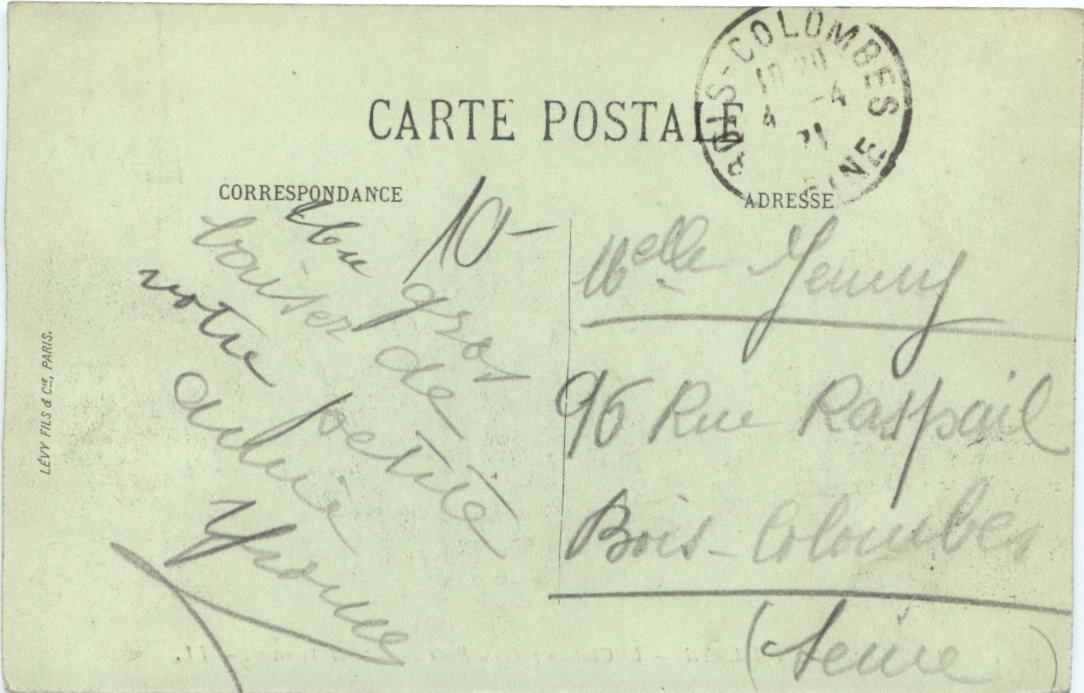 CARTE POSTALE
BOIS-COLOMBES
4 -4
21
SEINE
CORRESPONDANCE
ADRESSE
10-
Un gros
baiser de
votre petite
amie
Yvonne
Melle Jenny
96 Rue Raspail
Bois-Colombes
(Seine)
LÉVY FILS & Cie, PARIS.